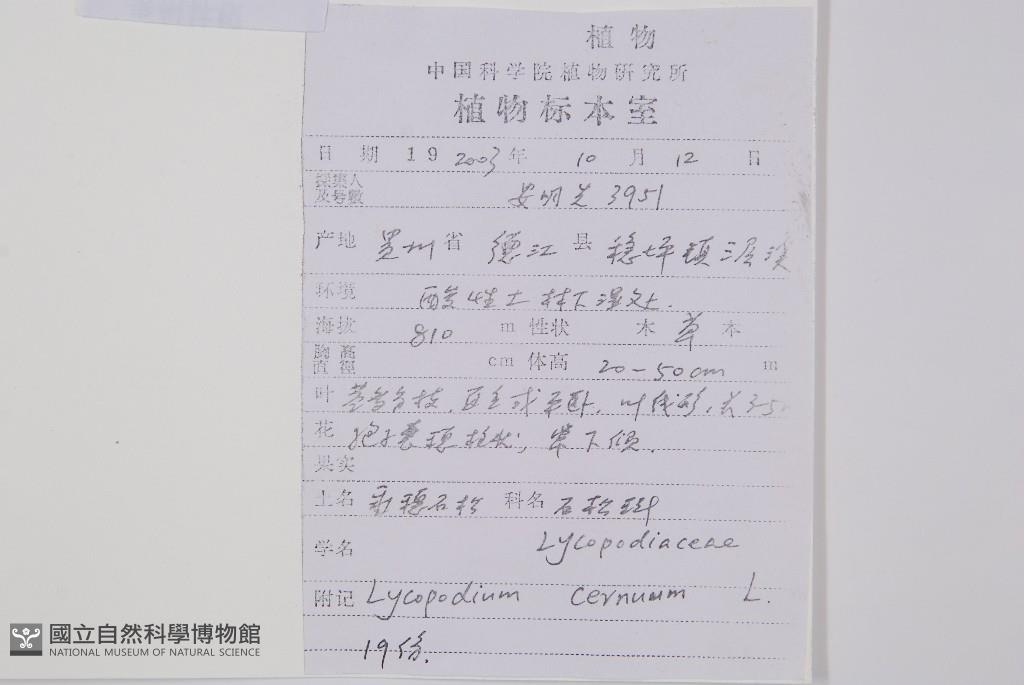 植物
中国科学院植物研究所
植物标本室
日 期 19 2003 年 10 月 12 日
採集人
及号數 安明先 3951
产地 贵州省 德江县 稳坪镇三层溪
环境 酸性土 林下湿处.
海拔 810 m 性状 木 草 本
胸高
直徑 cm 体高 20-50cm m
叶 茎多分枝, 直立或平卧, 叶线形, 长3-5
花 孢子囊穗柱状; 常下倾.
果实
土名 垂穗石松 科名 石松科
学名 Lycopodiaceae
附记 Lycopodium cernuum L.
19份.
國立自然科學博物館
NATIONAL MUSEUM OF NATURAL SCIENCE